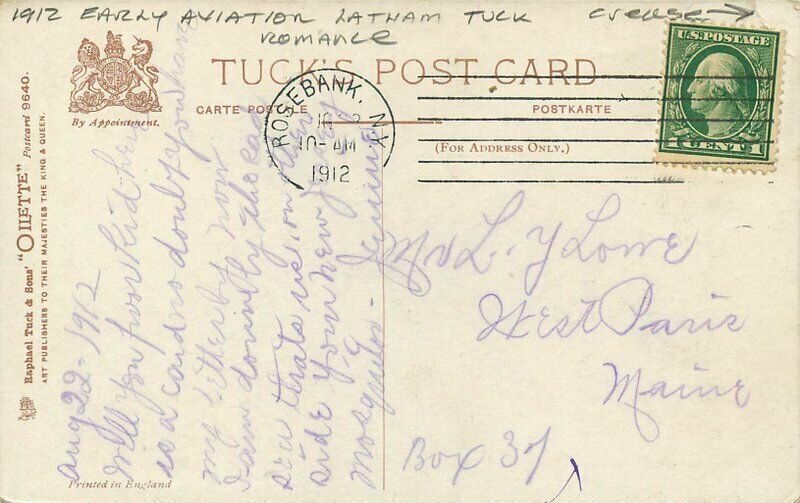 1912 EARLY AVIATION LATHAM TUCK
ROMANCE
crease
TUCK'S POST CARD
By Appointment.
CARTE POSTALE
POSTKARTE
(FOR ADDRESS ONLY.)
ROSEBANK, N.Y.
10-AM
1912
U.S. POSTAGE
1 CENT 1
Raphael Tuck & Sons' "OILETTE" Postcard 9640.
ART PUBLISHERS TO THEIR MAJESTIES THE KING & QUEEN.
Printed in England
Aug 22-1912
Well you poor kid here
is a card no doubt you have
my letter by now
I am down by the
sea that is on
side your New Jersey
Mosquitos -
Mr L. Y Lowe
West Paris
Maine
Box 37